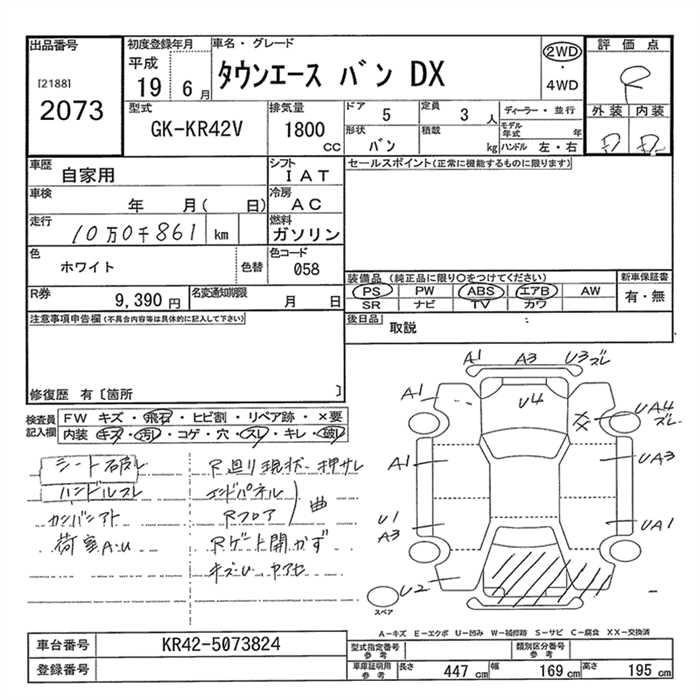 出品番号
[2188]
2073
初度登録年月
平成
19 6月
車名・グレード
タウンエース バン DX
2WD
・
4WD
評価点
R
外装 内装
D D
型式
GK-KR42V
排気量
1800
cc
ドア 5
定員 3 人
形状 バン
積載 kg
ディーラー・並行
モデル年式 年
ハンドル 左・右
車歴
自家用
シフト
IAT
セールスポイント(正常に機能するものに限ります)
車検
年 月( 日)
冷房
AC
走行
10万0千861 km
燃料
ガソリン
色
ホワイト
色替
色コード
058
装備品 (純正品に限り○をつけてください)
PS PW ABS エアB AW
SR ナビ TV カワ
新車保証書
有・無
R券
9,390 円
名変通知期限
月 日
後日品
取説
注意事項申告欄(不具合内容等は具体的に記入して下さい)
修復歴 有〔箇所 〕
検査員記入欄
FW キズ・飛石・ヒビ割・リペア跡・×要
内装 キズ・汚レ・コゲ・穴・スレ・キレ・破レ
シート破レ
ハンドルスレ
カンバンアト
荷室A.U
R廻り現状 押サレ
エンドパネル
Rフロア
曲
Rゲート開かず
キズ・U ヤアセ
A1 A3 U3ズレ
A1 U4 UA4ズレ
A1 UA3
U1
A3
UA1
U2
スペア
A-キズ E-エクボ U-凹み W-補修跡 S-サビ C-腐食 XX-交換済
車台番号
KR42-5073824
登録番号
型式指定番号
参考
類別区分番号
参考
車庫証明用
参考
長さ 447 cm 幅 169 cm 高さ 195 cm